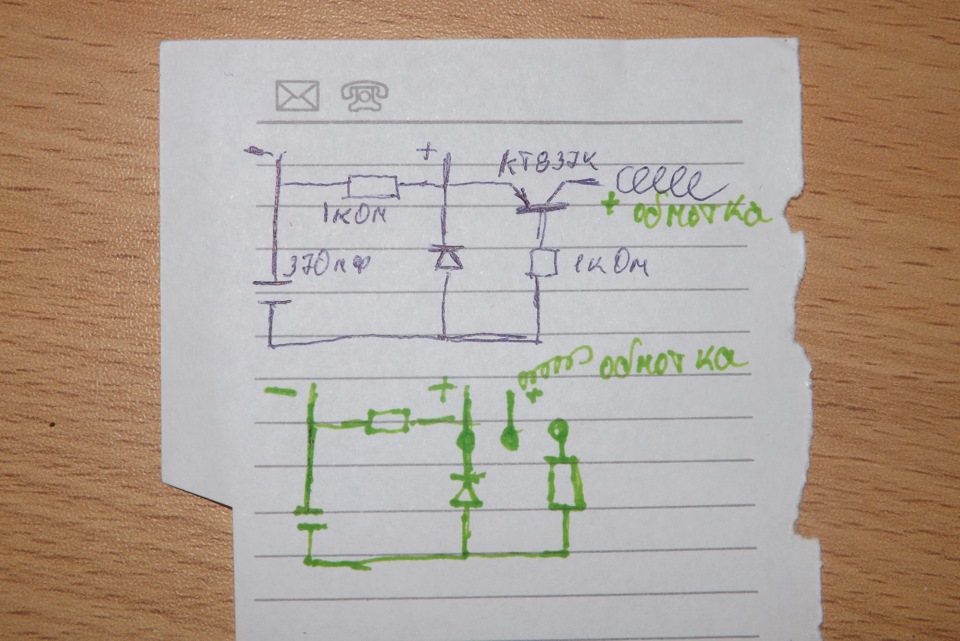 - + КТ837К
1кОм + обмотка
370мФ 1кОм
обмотка
- + +